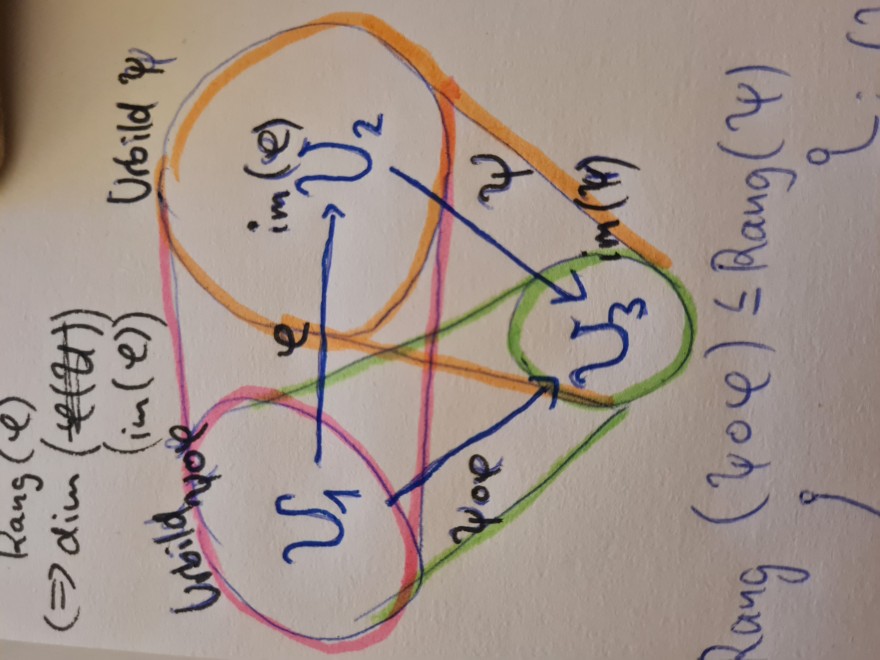 Rang (φ)
(=> dim (φ(U))
(im(φ))
Urbild ψ∘φ
Urbild ψ
im(φ)
V1
φ
V2
ψ∘φ
ψ
V3
im(ψ)
Rang (ψ∘φ) ≤ Rang(ψ)